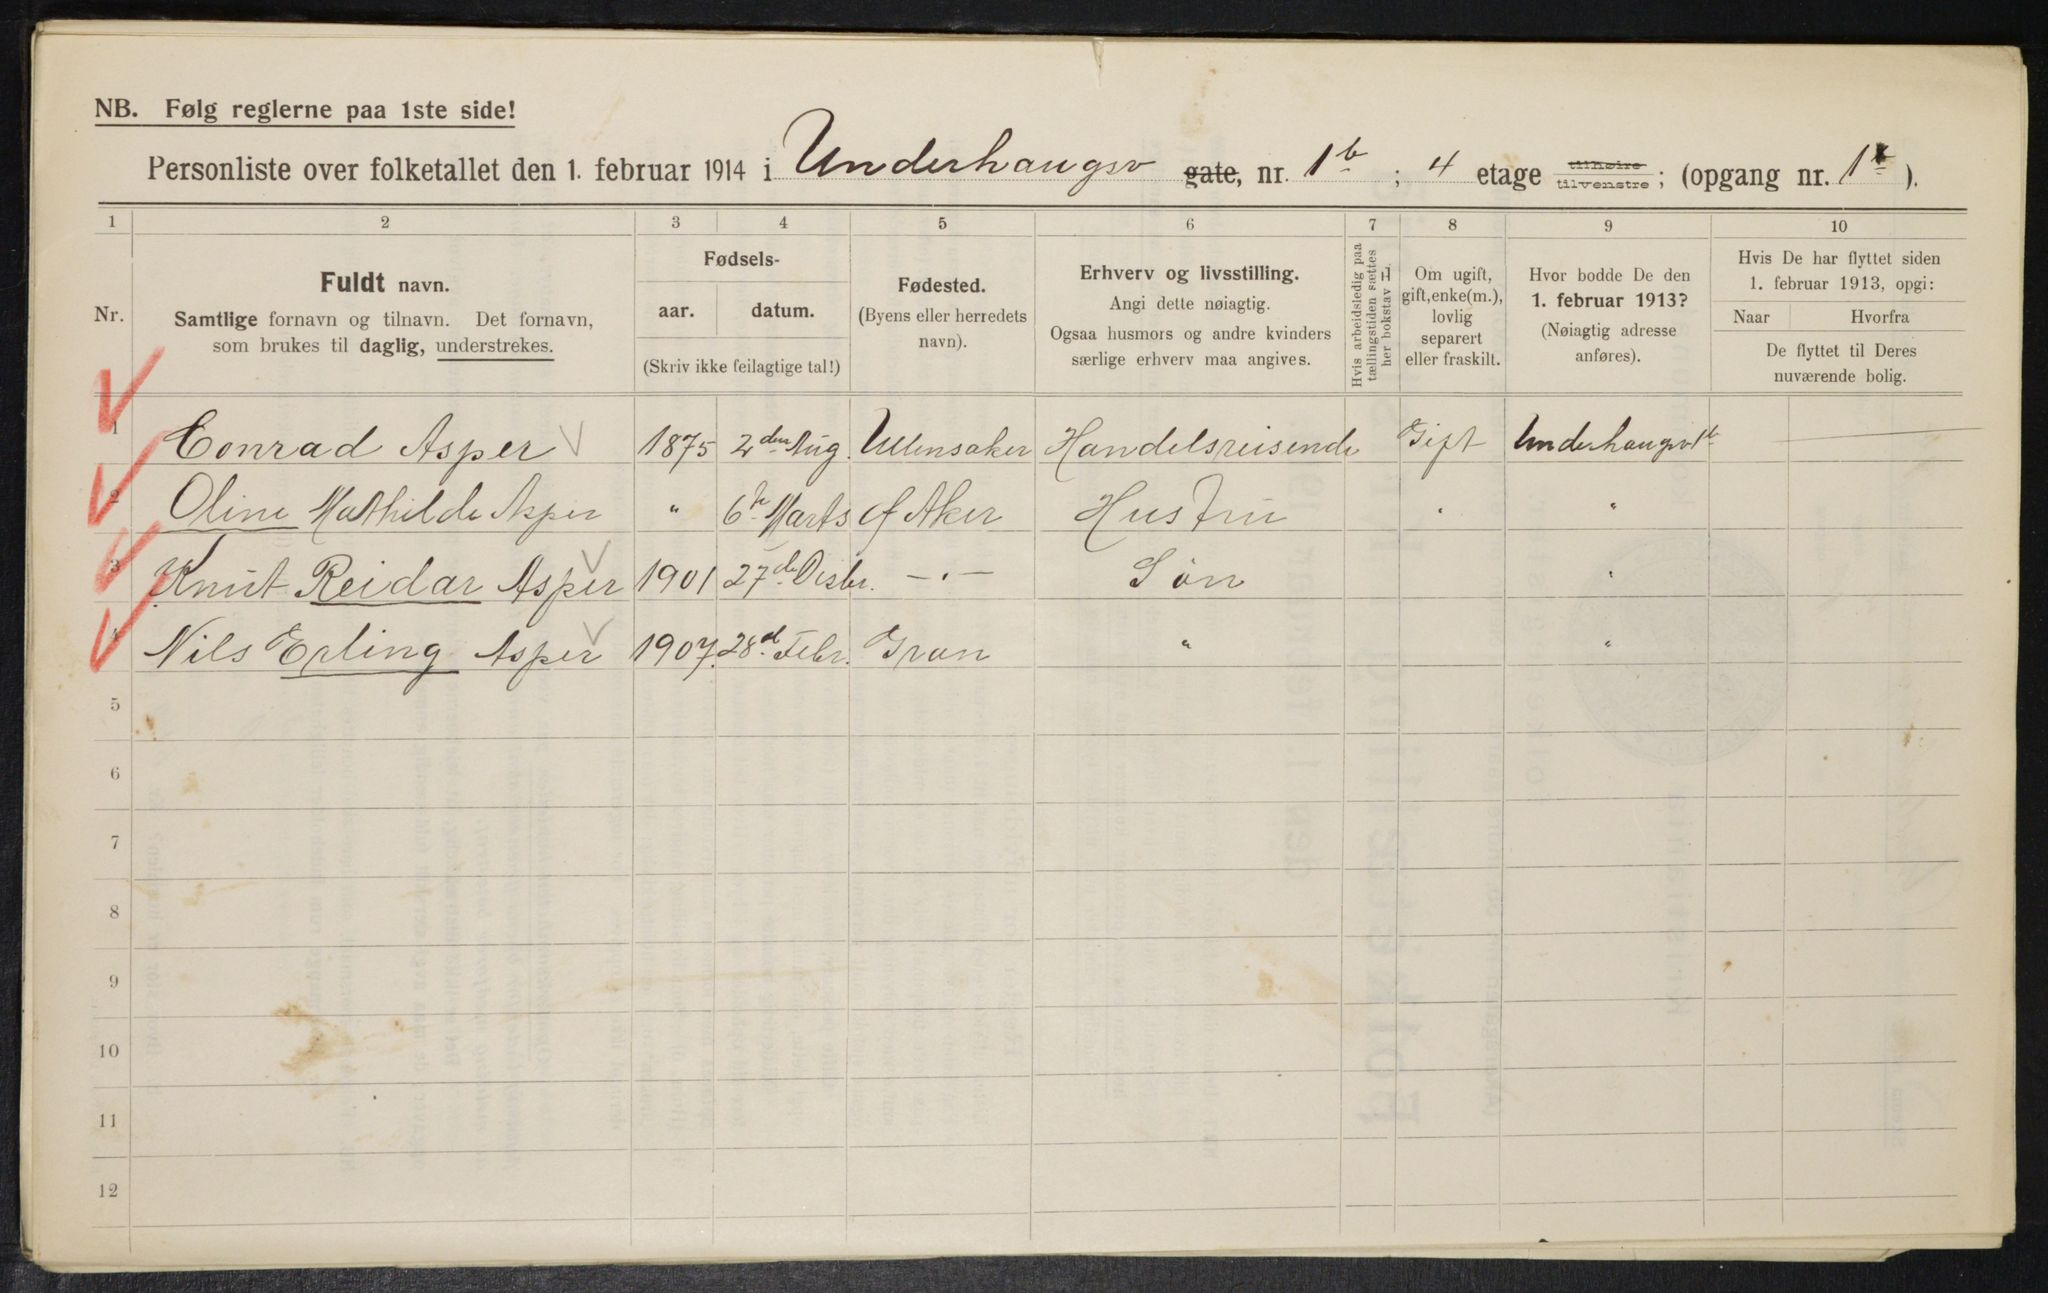 NB. Følg reglerne paa 1ste side!
Personliste over folketallet den 1. februar 1914 i Underhaugsv gate, nr. 1b ; 4 etage tilhøire tilvenstre; (opgang nr. 1).
1 2 3 4 5 6 7 8 9 10
Nr.
Fuldt navn.
Samtlige fornavn og tilnavn. Det fornavn,
som brukes til daglig, understrekes.
Fødsels-
aar. datum.
(Skriv ikke feilagtige tal!)
Fødested.
(Byens eller herredets
navn).
Erhverv og livsstilling.
Angi dette nøiagtig.
Ogsaa husmors og andre kvinders
særlige erhverv maa angives.
Hvis arbeidsledig paa
tællingstiden sættes
her bokstav L.
Om ugift,
gift, enke(m.),
lovlig
separert
eller fraskilt.
Hvor bodde De den
1. februar 1913?
(Nøiagtig adresse
anføres).
Hvis De har flyttet siden
1. februar 1913, opgi:
Naar Hvorfra
De flyttet til Deres
nuværende bolig.
1 Conrad Asper 1875 2den Aug. Ullensaker Handelsreisende Gift Underhaugsv 1b —
2 Oline Mathilde Asper " 6te Marts Ø Aker Hustru " "
3 Knut Reidar Asper 1901 27de Desbr. —"— Søn "
4 Nils Erling Asper 1907. 28de Febr. Gran " "
5
6
7
8
9
10
11
12